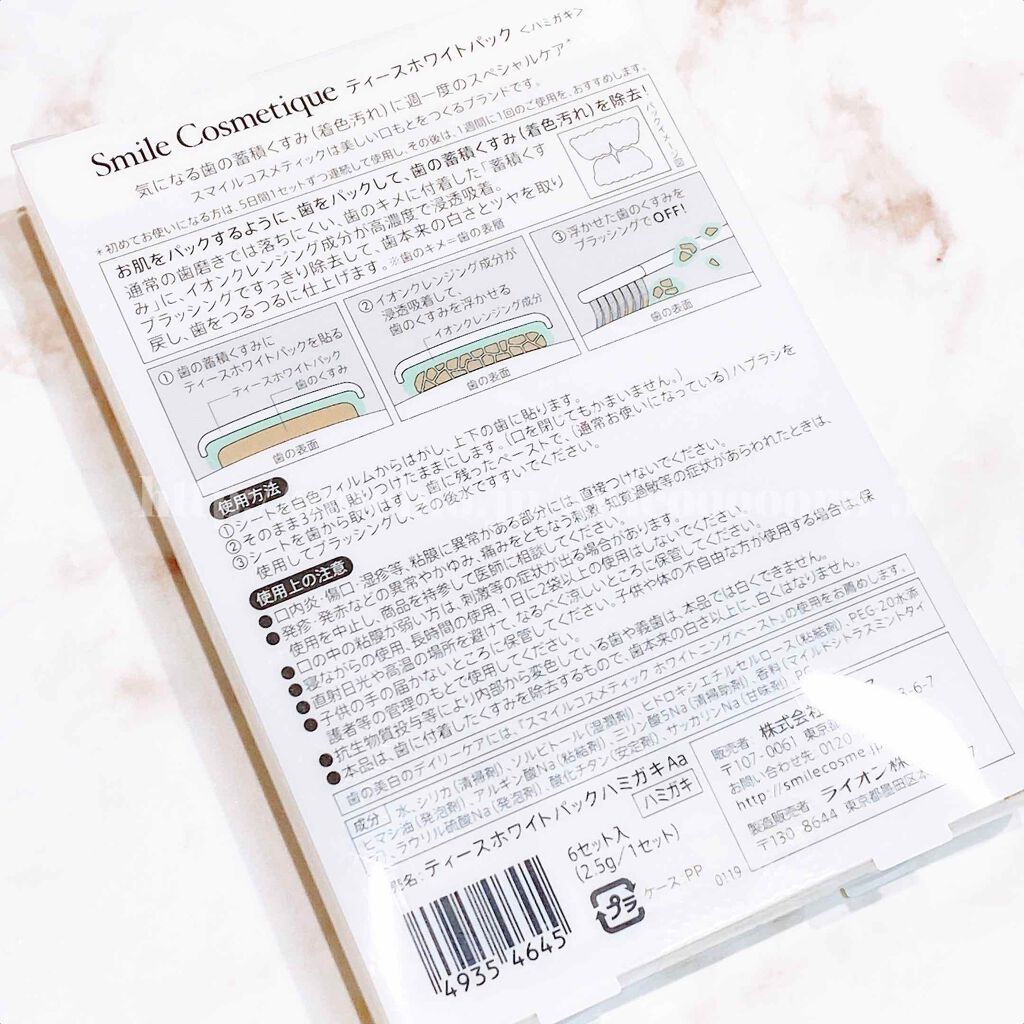 Smile Cosmetique ティースホワイトパック <ハミガキ>
気になる歯の蓄積くすみ(着色汚れ)に週一度のスペシャルケア*
スマイルコスメティックは美しい口もとをつくるブランドです。
*初めてお使いになる方は、5日間1セットずつ連続して使用し、その後は、1週間に1回のご使用を、おすすめします。
お肌をパックするように、歯をパックして、歯の蓄積くすみ(着色汚れ)を除去!
通常の歯磨きでは落ちにくい、歯のキメに付着した「蓄積くす
み」に、イオンクレンジング成分が高濃度で浸透吸着。
ブラッシングですっきり除去して、歯本来の白さとツヤを取り
戻し、歯をつるつるに仕上げます。※歯のキメ=歯の表層
パックイメージ図
① 歯の蓄積くすみに
ティースホワイトパックを貼る
ティースホワイトパック
歯のくすみ
歯の表面
② イオンクレンジング成分が
浸透吸着して、
歯のくすみを浮かせる
イオンクレンジング成分
歯の表面
③ 浮かせた歯のくすみを
ブラッシングでOFF!
歯の表面
使用方法
①シートを白色フィルムからはがし、上下の歯に貼ります。
②そのまま3分間、貼りつけたままにします。(口を閉じてもかまいません。)
③シートを歯から取りはずし、歯に残ったペーストで、(通常お使いになっている)ハブラシを
使用してブラッシングし、その後水ですすいでください。
使用上の注意
●口内炎、傷口、湿疹等、粘膜に異常がある部分には、直接つけないでください。
●発疹、発赤などの異常やかゆみ、痛みをともなう刺激、知覚過敏等の症状があらわれたときは、
使用を中止し、商品を持参して医師に相談してください。
●口の中の粘膜が弱い方は、刺激等の症状が出る場合があります。
●寝ながらの使用、長時間の使用、1日に2袋以上の使用はしないでください。
●直射日光や高温の場所を避けて、なるべく涼しいところに保管してください。
●子供の手の届かないところに保管してください。子供や体の不自由な方が使用する場合は、保
護者等の管理のもとで使用してください。
●抗生物質投与等により内部から変色している歯や義歯は、本品では白くできません。
●本品は、歯に付着したくすみを除去するもので、歯本来の白さ以上に、白くはなりません。
歯の美白のデイリーケアには、『スマイルコスメティック ホワイトニングペースト』の使用をお薦めします。
成分 水、シリカ(清掃剤)、ソルビトール(湿潤剤)、ヒドロキシエチルセルロース(粘結剤)、PEG-20水添
ヒマシ油(発泡剤)、アルギン酸Na(粘結剤)、ミリン酸5Na(清掃助剤)、香料(マイルドシトラスミントタイ
プ)、ラウリル硫酸Na(発泡剤)、酸化チタン(安定剤)、サッカリンNa(甘味剤)、
名: ティースホワイトパックハミガキAa
ハミガキ
6セット入
(2.5g/1セット)
プラ
ケース:PP
0119
4935 4645
販売者 株式会社
〒107-0061 東京都
3-6-7
お問い合わせ先 0120
http://smilecosme.j
製造販売者 ライオン株
〒130 8644 東京都墨田区本